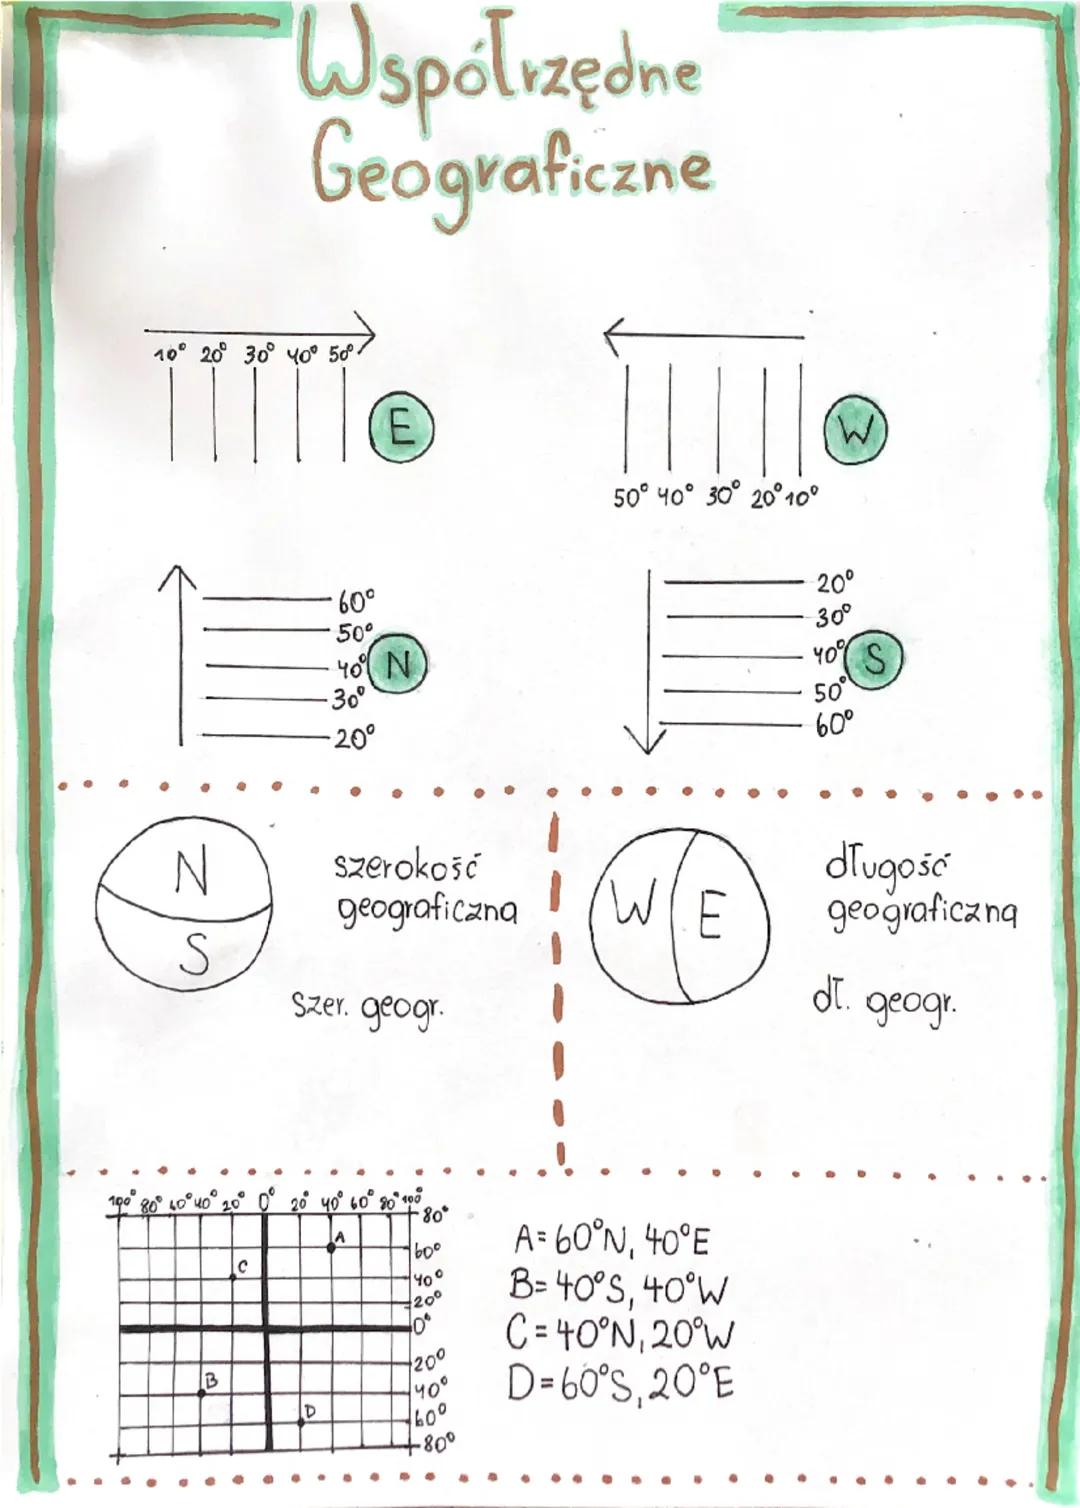 Współrzędne
Geograficzne
10° 20° 30° 40° 50°
E
W
50° 40° 30° 20° 10°
60°
50°
40°
30°
20°
N
20°
30°
40°
50°
60°
S
N
S
szerokość
geograficzna
szer. geogr.
W E
długość
geograficzna
dł. geogr.
100° 80° 60° 40° 20° 0° 20° 40° 60° 80° 100°
80°
60°
40°
20°
0°
20°
40°
60°
80°
A
C
B
D
A=60°N, 40°E
B=40°S, 40°W
C=40°N, 20°W
D=60°S, 20°E